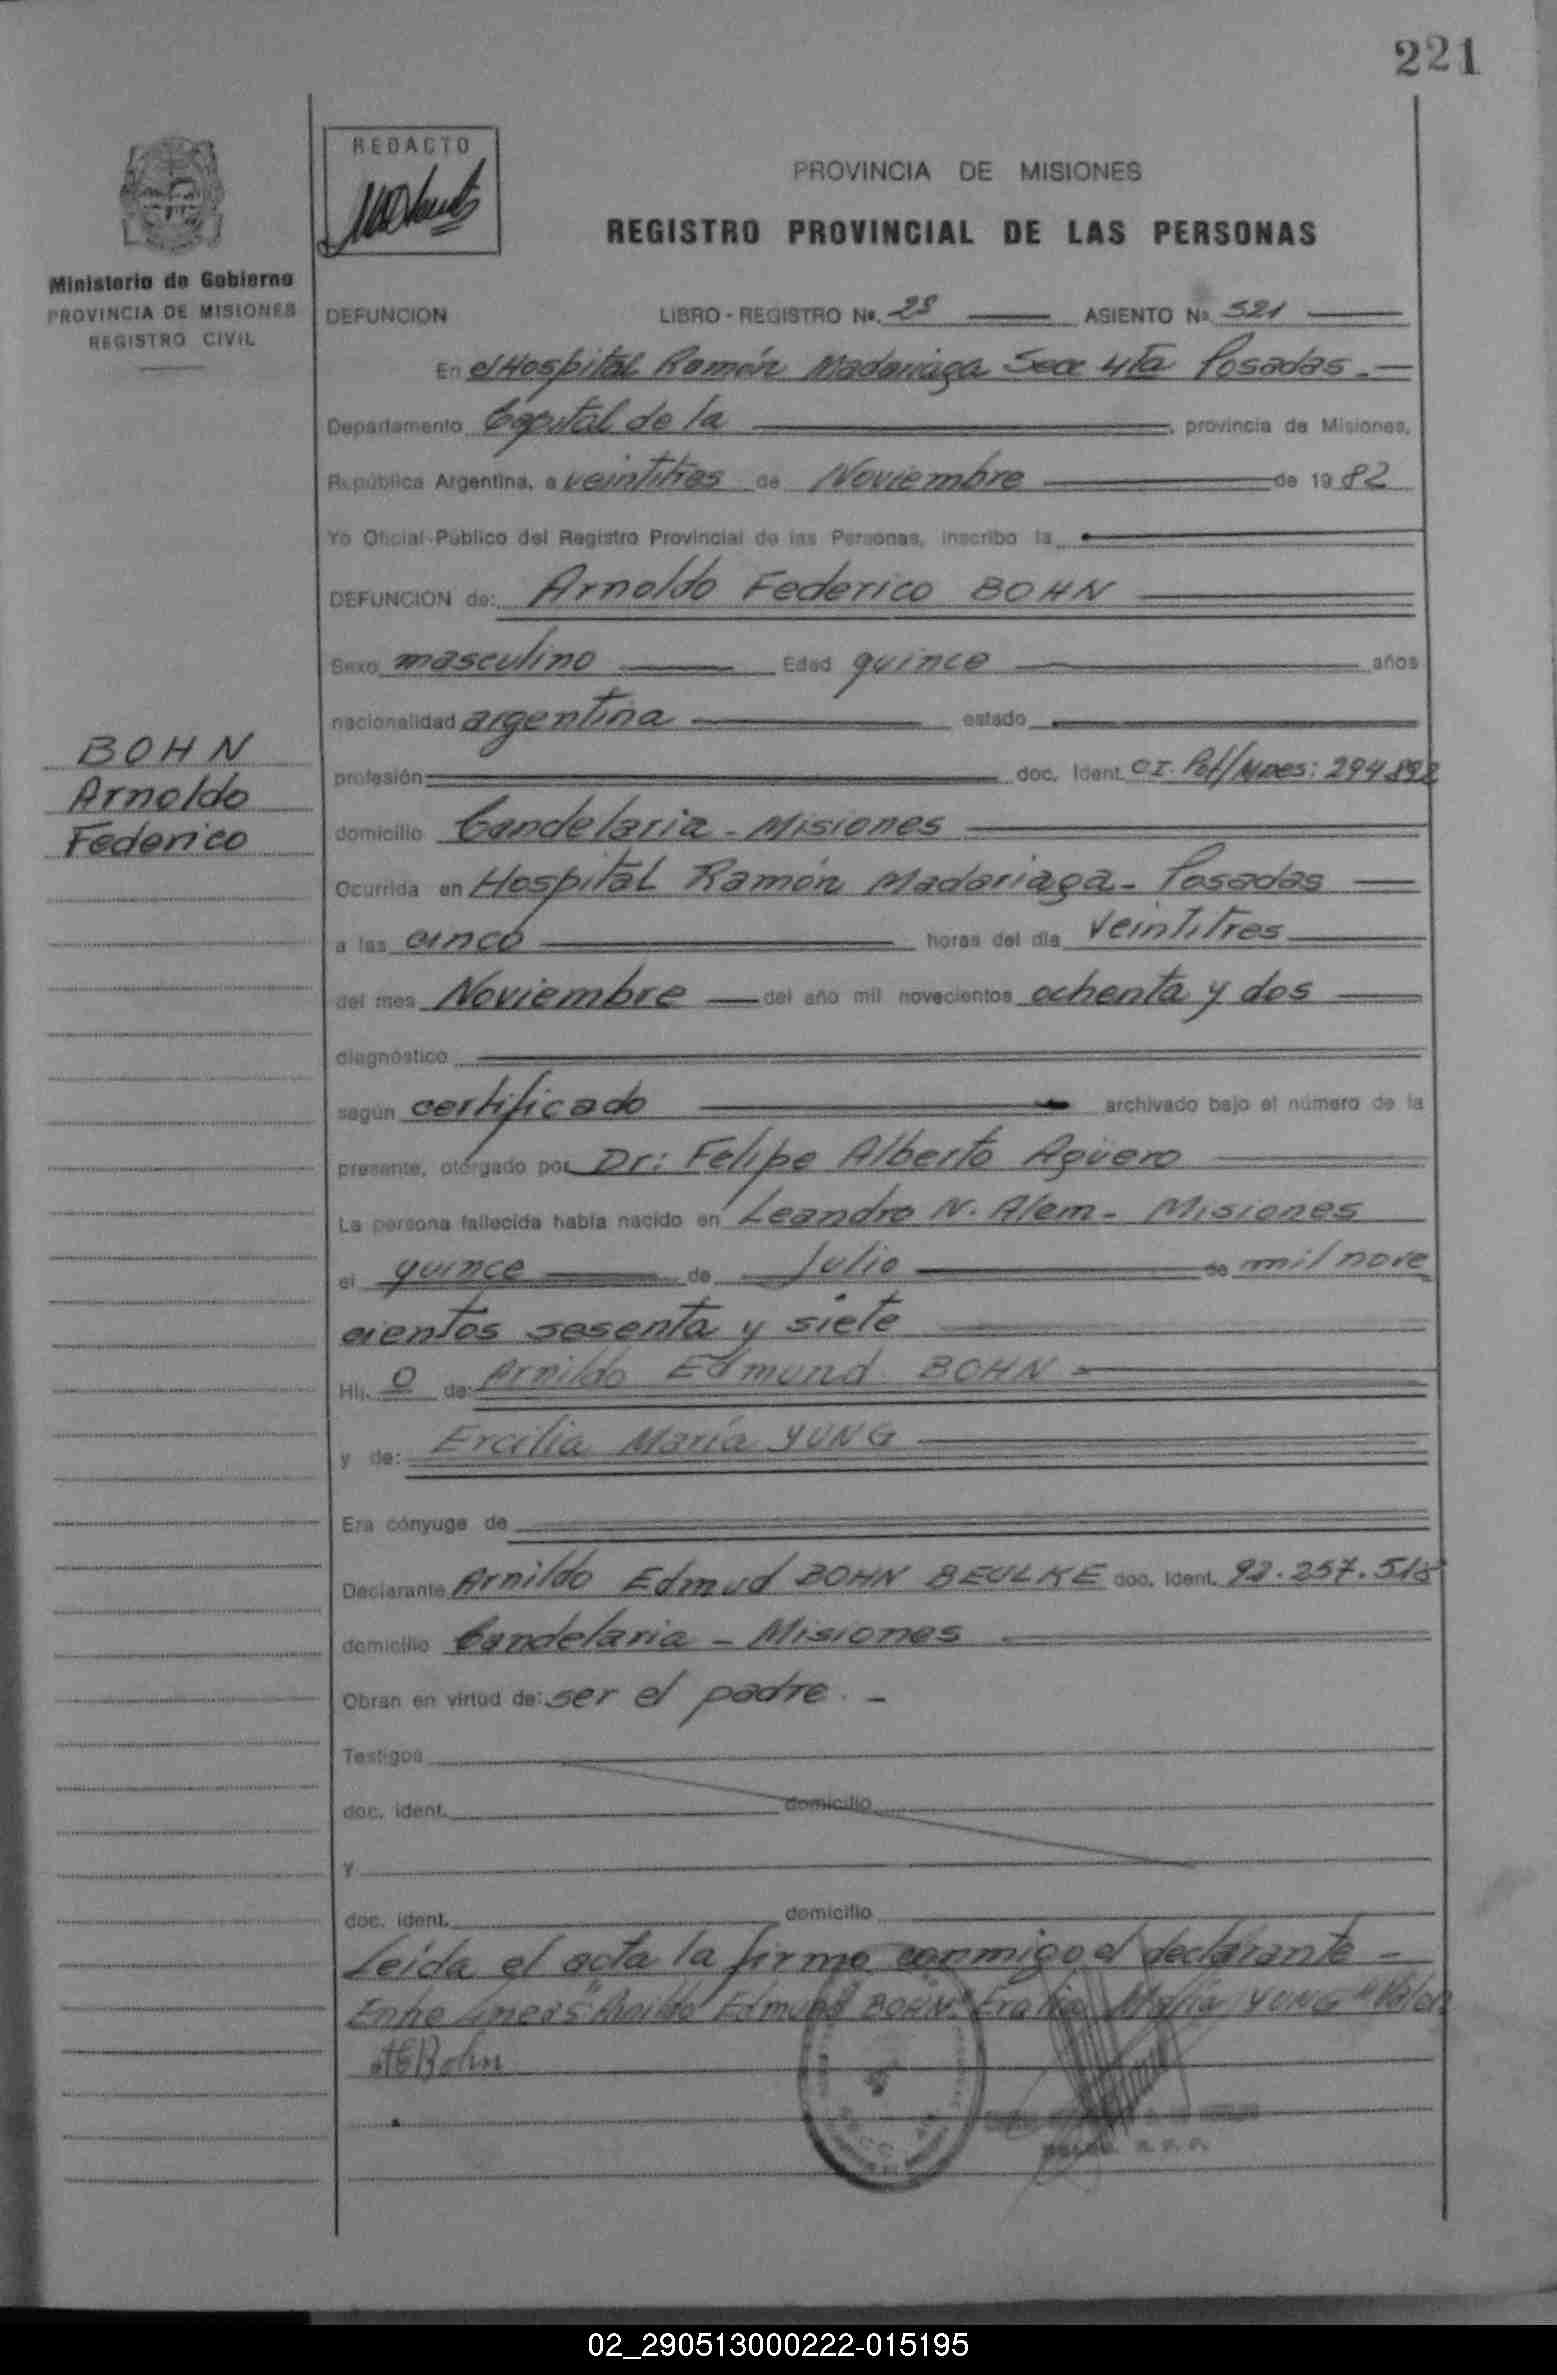 221
REDACTO
PROVINCIA DE MISIONES
REGISTRO PROVINCIAL DE LAS PERSONAS
Ministerio de Gobierno
PROVINCIA DE MISIONES
REGISTRO CIVIL
DEFUNCION LIBRO - REGISTRO Nº. 28 ASIENTO Nº 521
En el Hospital Ramón Madariaga Secc 4ta Posadas.-
Departamento Capital de la , provincia de Misiones,
República Argentina, a veintitres de Noviembre de 1982
Yo Oficial Público del Registro Provincial de las Personas, inscribo la
DEFUNCION de: Arnoldo Federico BOHN
Sexo masculino Edad quince años
nacionalidad argentina estado
BOHN
Arnoldo
Federico
profesión doc. Ident. CI. Pol/Mnes: 294892
domicilio Candelaria - Misiones
Ocurrida en Hospital Ramón Madariaga - Posadas
a las cinco horas del día veintitres
del mes Noviembre del año mil novecientos ochenta y dos
diagnóstico
según certificado archivado bajo el número de la
presente, otorgado por Dr: Felipe Alberto Agüero
La persona fallecida había nacido en Leandro N. Alem - Misiones
el quince de Julio de mil nove
cientos sesenta y siete
Hij. o de: Arnildo Edmund BOHN
y de: Ercilia María YUNG
Era cónyuge de
Declarante Arnildo Edmud BOHN BEULKE doc. Ident. 92.257.518
domicilio Candelaria - Misiones
Obran en virtud de: ser el padre. -
Testigos
doc. ident. domicilio
y
doc. ident. domicilio
Leída el acta la firma conmigo el declarante -
Entre lineas "Arnildo Edmund BOHN" Ercilia María YUNG" Valen
AEBohn
02_290513000222-015195